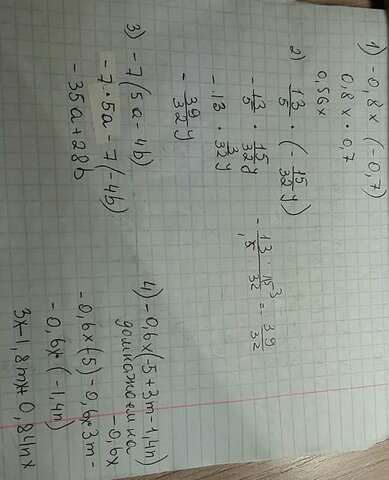 1) -0,8x (-0,7)
0,8x · 0,7
0,56x
2) 13/5 · (-15/32 y)
-13/5 · 15/32 y
-13 · 3/32 y
-39/32 y
-13/5 · 15/32 = -39/32
1 3
3) -7(5a-4b)
-7·5a-7(-4b)
-35a+28b
4) -0,6x(-5+3m-1,4n)
домножаем на
-0,6x
-0,6x(-5)-0,6x3m-
-0,6x(-1,4n)
3x-1,8mx+0,84nx